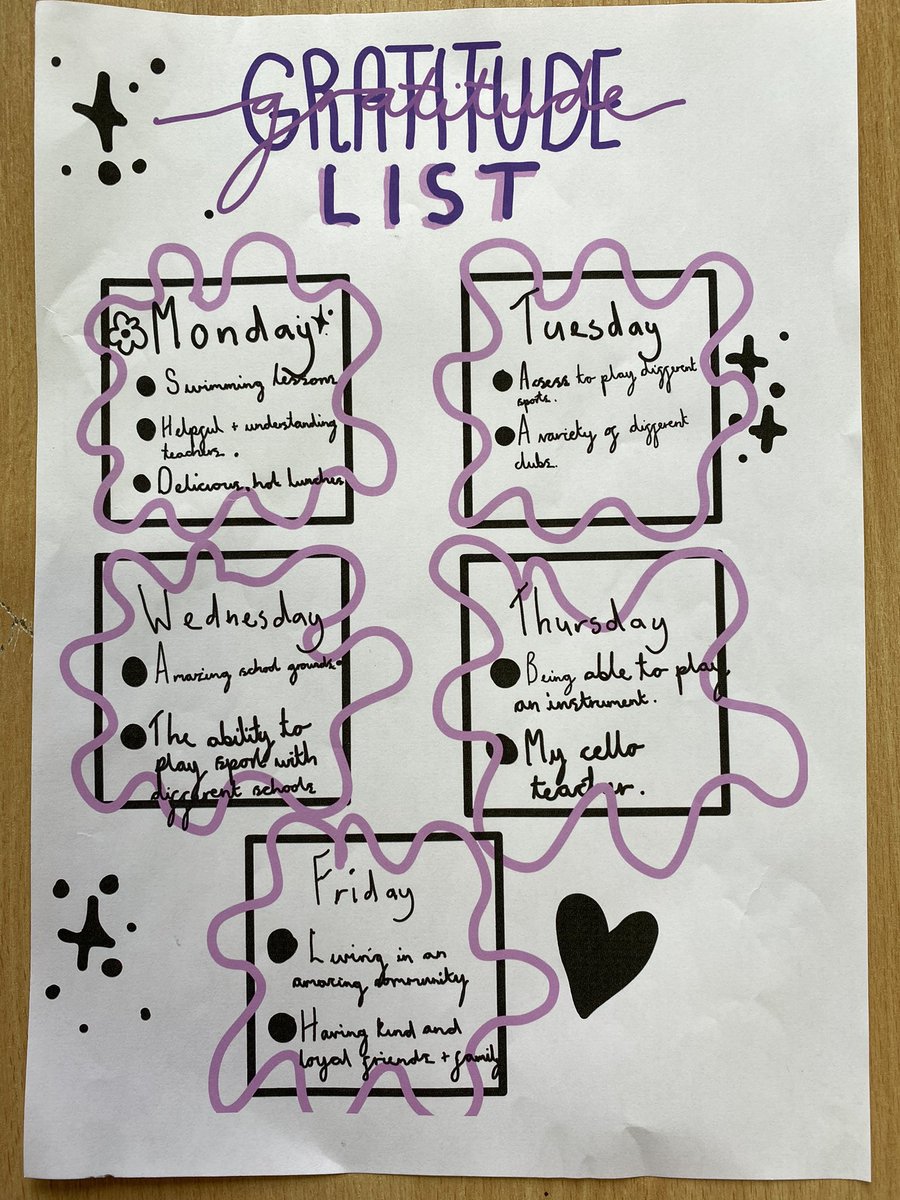 GRATITUDE
gratitude
LIST
Monday
Swimming lessons
Helpful + understanding
teachers.
Delicious, hot lunches
Tuesday
Access to play different
sports.
A variety of different
clubs.
Wednesday
Amazing school grounds.
The ability to
play sport with
different schools
Thursday
Being able to play
an instrument.
My cello
teacher.
Friday
Living in an
amazing community
Having kind and
loyal friends + family